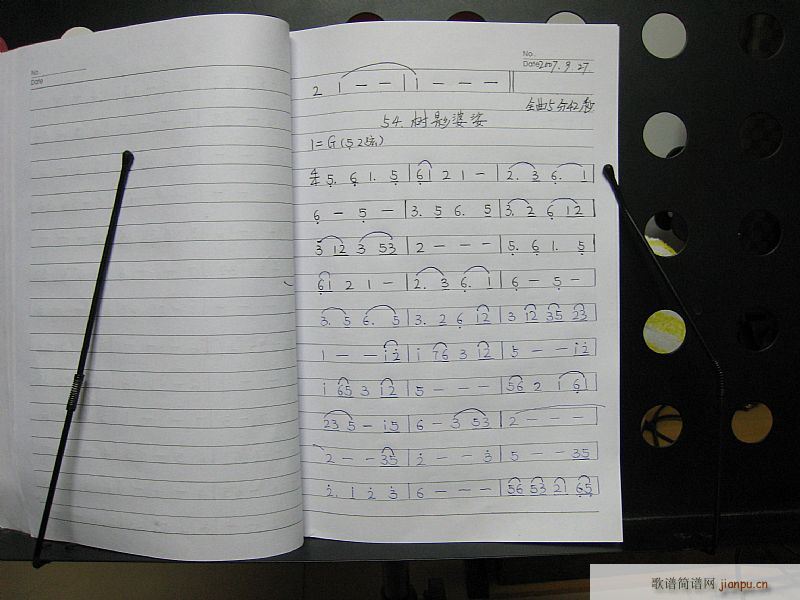 No.
Date
No.
Date 2007.9.27.
2 | i - - | i - - - ||
全曲5分42秒
54. 树影婆娑
1=G(5 2弦)
4/4 5. 6 1. 5 | 61 2 1 - | 2. 3 6. 1 |
6 - 5 - | 3. 5 6. 5 | 3. 2 6 12 |
3 12 3 53 | 2 - - - | 5. 6 1. 5 |
61 2 1 - | 2. 3 6. 1 | 6 - 5 - |
3. 5 6. 5 | 3. 2 6 12 | 3 12 35 23 |
1 - - i2 | i 76 3 12 | 5 - - i2 |
i 65 3 12 | 5 - - - | 56 2 1 61 |
23 5 - i5 | 6 - 3 53 | 2 - - - |
2 - - 35 | 2 - - 3 | 5 - - 35 |
2. i 2 3 | 6 - - - | 56 53 21 65 |
歌谱简谱网 jianpu.cn